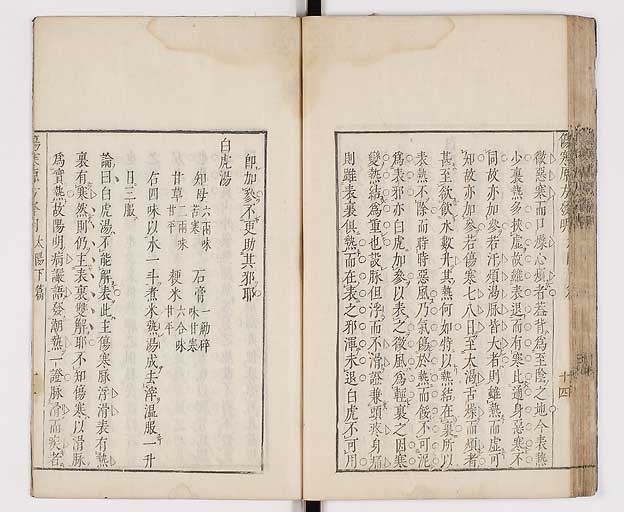 微惡寒而口燥心煩者葢背爲至陰之地今表熱
少裏熱多挾虛故雖表退而有寒此通身惡寒不
同故亦加參若汗煩渴脉皆大者則雖熱而虛可
知故亦加參若傷寒七八日至大渴舌燥而煩者
甚至欲飲水數升其熱何如特以熱結在裏所以
表熱不除而時時惡風乃氣傷於熱而餒不可泥
爲表邪亦白虎加參以表之微風爲輕裏之因寒
變熱結爲重也設脉但浮而不滑證兼頭疼身痛
則雖表裏俱熱而在表之邪渾未退白虎不可用
卽加參不更助其邪耶
白虎湯
知母六兩味苦寒 石膏一觔碎味甘寒
甘草二兩味甘平 粳米六合味甘平
右四味以水一斗煮米熟湯成去滓溫服一升
日三服
論曰白虎湯不能解表此主傷寒脉浮滑表有熱
裏有寒然則仍主表裏雙解耶不知傷寒以滑脉
爲實熱故陽明病讝語發潮熱一證脉滑而疾者
太陽下篇
十四